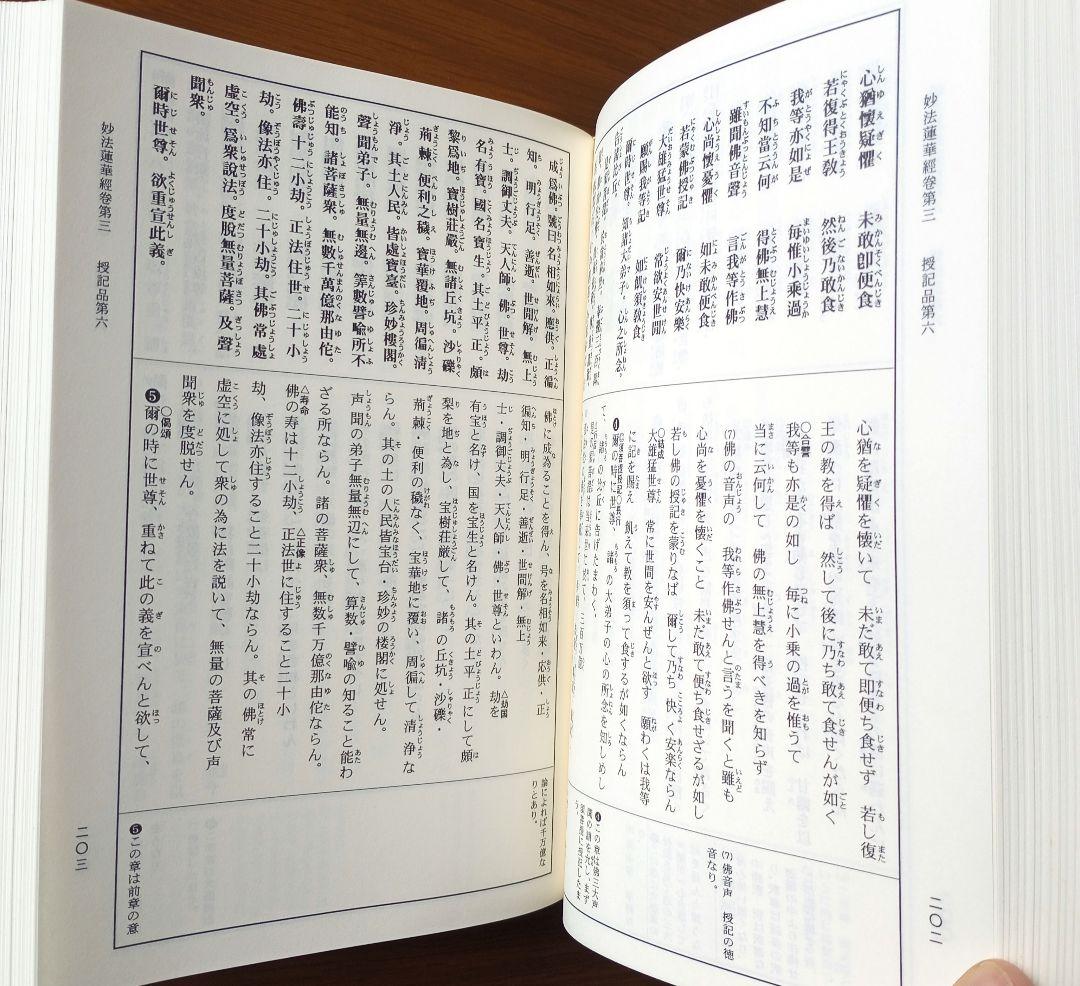 妙法蓮華經卷第三　授記品第六
二〇二
心猶懷疑懼　未敢即便食
若復得王敎　然後乃敢食
我等亦如是　每惟小乘過
不知當云何　得佛無上慧
雖聞佛音聲　言我等作佛
心尚懷憂懼　如未敢便食
若蒙佛授記　爾乃快安樂
大雄猛世尊　常欲安世間
願賜我等記　如飢須敎食
爾時世尊。知諸大弟子。心之所念。
心猶を疑懼を懐いて　未だ敢て即便ち食せず　若し復
王の教を得ば　然して後に乃ち敢て食せんが如く
○合譬
我等も亦是の如し　毎に小乗の過を惟うて
当に云何して　佛の無上慧を得べきを知らず
(7)佛の音声の　我等作佛せんと言うを聞くと雖も
心尚を憂懼を懐くこと　未だ敢て便ち食せざるが如し
若し佛の授記を蒙りなば　爾して乃ち快く安楽ならん
○結成
大雄猛世尊　常に世間を安んぜんと欲す　願わくは我等
に記を賜え　飢えて教を須って食するが如くならん
❹爾の時に世尊、諸の大弟子の心の所念を知しめし
て、諸の比丘に告げたまわく、
(7) 佛音声　授記の徳
音なり。
❹この章は佛三大声
妙法蓮華經卷第三　授記品第六
二〇三
成爲佛。號曰名相如來。應供。正徧
知。明行足。善逝。世間解。無上
士。調御丈夫。天人師。佛。世尊。劫
名有寶。國名寶生。其土平正。頗
黎爲地。寶樹莊嚴。無諸丘坑。沙礫
荊棘。便利之穢。寶華覆地。周徧淸
淨。其土人民。皆處寶臺。珍妙樓閣。
聲聞弟子。無量無邊。算數譬喩所不
能知。諸菩薩衆。無數千萬億那由佗。
佛壽十二小劫。正法住世。二十小
劫。像法亦住。二十小劫。其佛常處
虛空。爲衆說法。度脫無量菩薩。及聲
聞衆。
爾時世尊。欲重宣此義。
佛に成為ることを得ん、号を名相如来・応供・正
徧知・明行足・善逝・世間解・無上
士・調御丈夫・天人師・佛・世尊といわん。△劫国 劫を
有宝と名け、国を宝生と名けん。其の土平正にして頗
梨を地と為し、宝樹荘厳して、諸の丘坑・沙礫・
荊棘・便利の穢なく、宝華地に覆い、周徧して清浄な
らん。其の土の人民皆宝台・珍妙の楼閣に処せん。
声聞の弟子無量無辺にして、算数・譬喩の知ること能わ
ざる所ならん。諸の菩薩衆、無数千万億那由佗ならん。
△寿命 △正像
佛の寿は十二小劫、正法世に住すること二十小
劫、像法亦住すること二十小劫ならん。其の佛常に
虚空に処して衆の為に法を説いて、無量の菩薩及び声
聞衆を度脱せん。
○偈頌
❺爾の時に世尊、重ねて此の義を宣べんと欲して、
論によれば千万億な
りとあり。
❺この章は前章の意